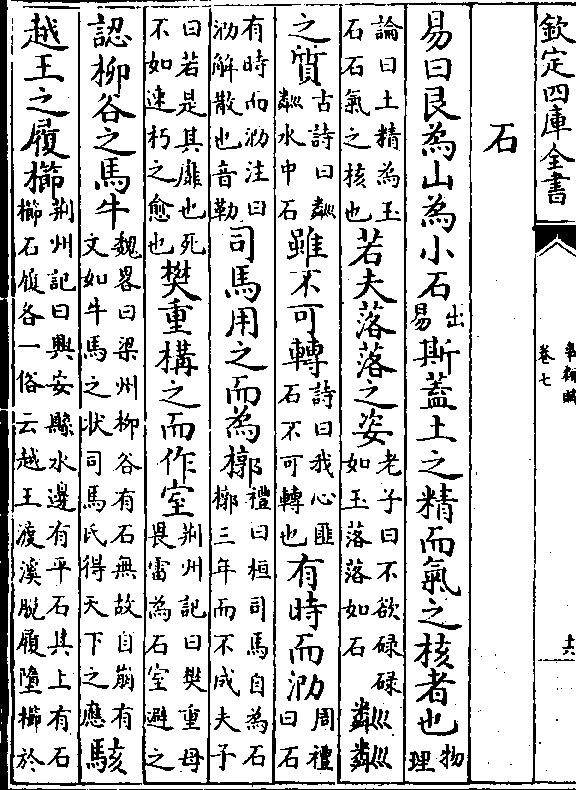 欽定四庫全書
事類賦
卷七
十六
石
易曰艮為山為小石出易斯蓋土之精而氣之核者也物理
論曰土精為玉石石氣之核也若夫落落之姿老子曰不欲碌碌如玉落落如石粼粼
之質古詩曰粼粼水中石雖不可轉詩曰我心匪石不可轉也有時而泐周禮曰石
有時而泐注曰泐解散也音勒司馬用之而為槨禮曰桓司馬自為石槨三年而不成夫子
曰若是其靡也死不如速朽之愈也樊重構之而作室荆州記曰樊重母畏雷為石室避之
認柳谷之馬牛魏畧曰梁州柳谷有石無故自崩有文如牛馬之状司馬氏得天下之應駭
越王之履櫛荆州記曰興安縣水邊有平石其上有石櫛石履各一俗云越王渡溪脱履墮櫛於